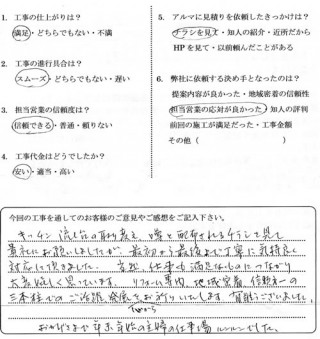 1. 工事の仕上がりは？
満足・どちらでもない・不満
2. 工事の進行具合は？
スムーズ・どちらでもない・遅い
3. 担当営業の信頼度は？
信頼できる・普通・頼りない
4. 工事代金はどうでしたか？
安い・適当・高い
5. アルマに見積りを依頼したきっかけは？
チラシを見て・知人の紹介・近所だから
HPを見て・以前頼んだことがある
6. 弊社に依頼する決め手となったのは？
提案内容が良かった・地域密着の信頼性
担当営業の応対が良かった・知人の評判
前回の施工が満足だった・工事金額
その他（　　　　　　）
今回の工事を通してのお客様のご意見やご感想をご記入下さい。
キッチン 流し台の取り替え
貴社にお願いしましたが 最初から最後まで丁寧に気持良く
対応して頂きました。 仕事も満足なものにつながり
大変嬉しく思っています。 リフォーム専門、地域密着、信頼第一の
三本柱でのご活躍、発展をお祈りいたします。
おかげさまで年末年始の主婦の仕事場ルンルンでした。